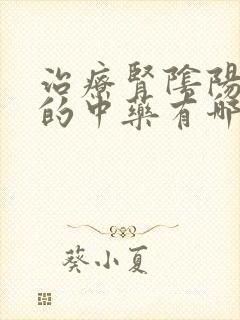 治療腎陰陽
的中藥有哪
葵小夏